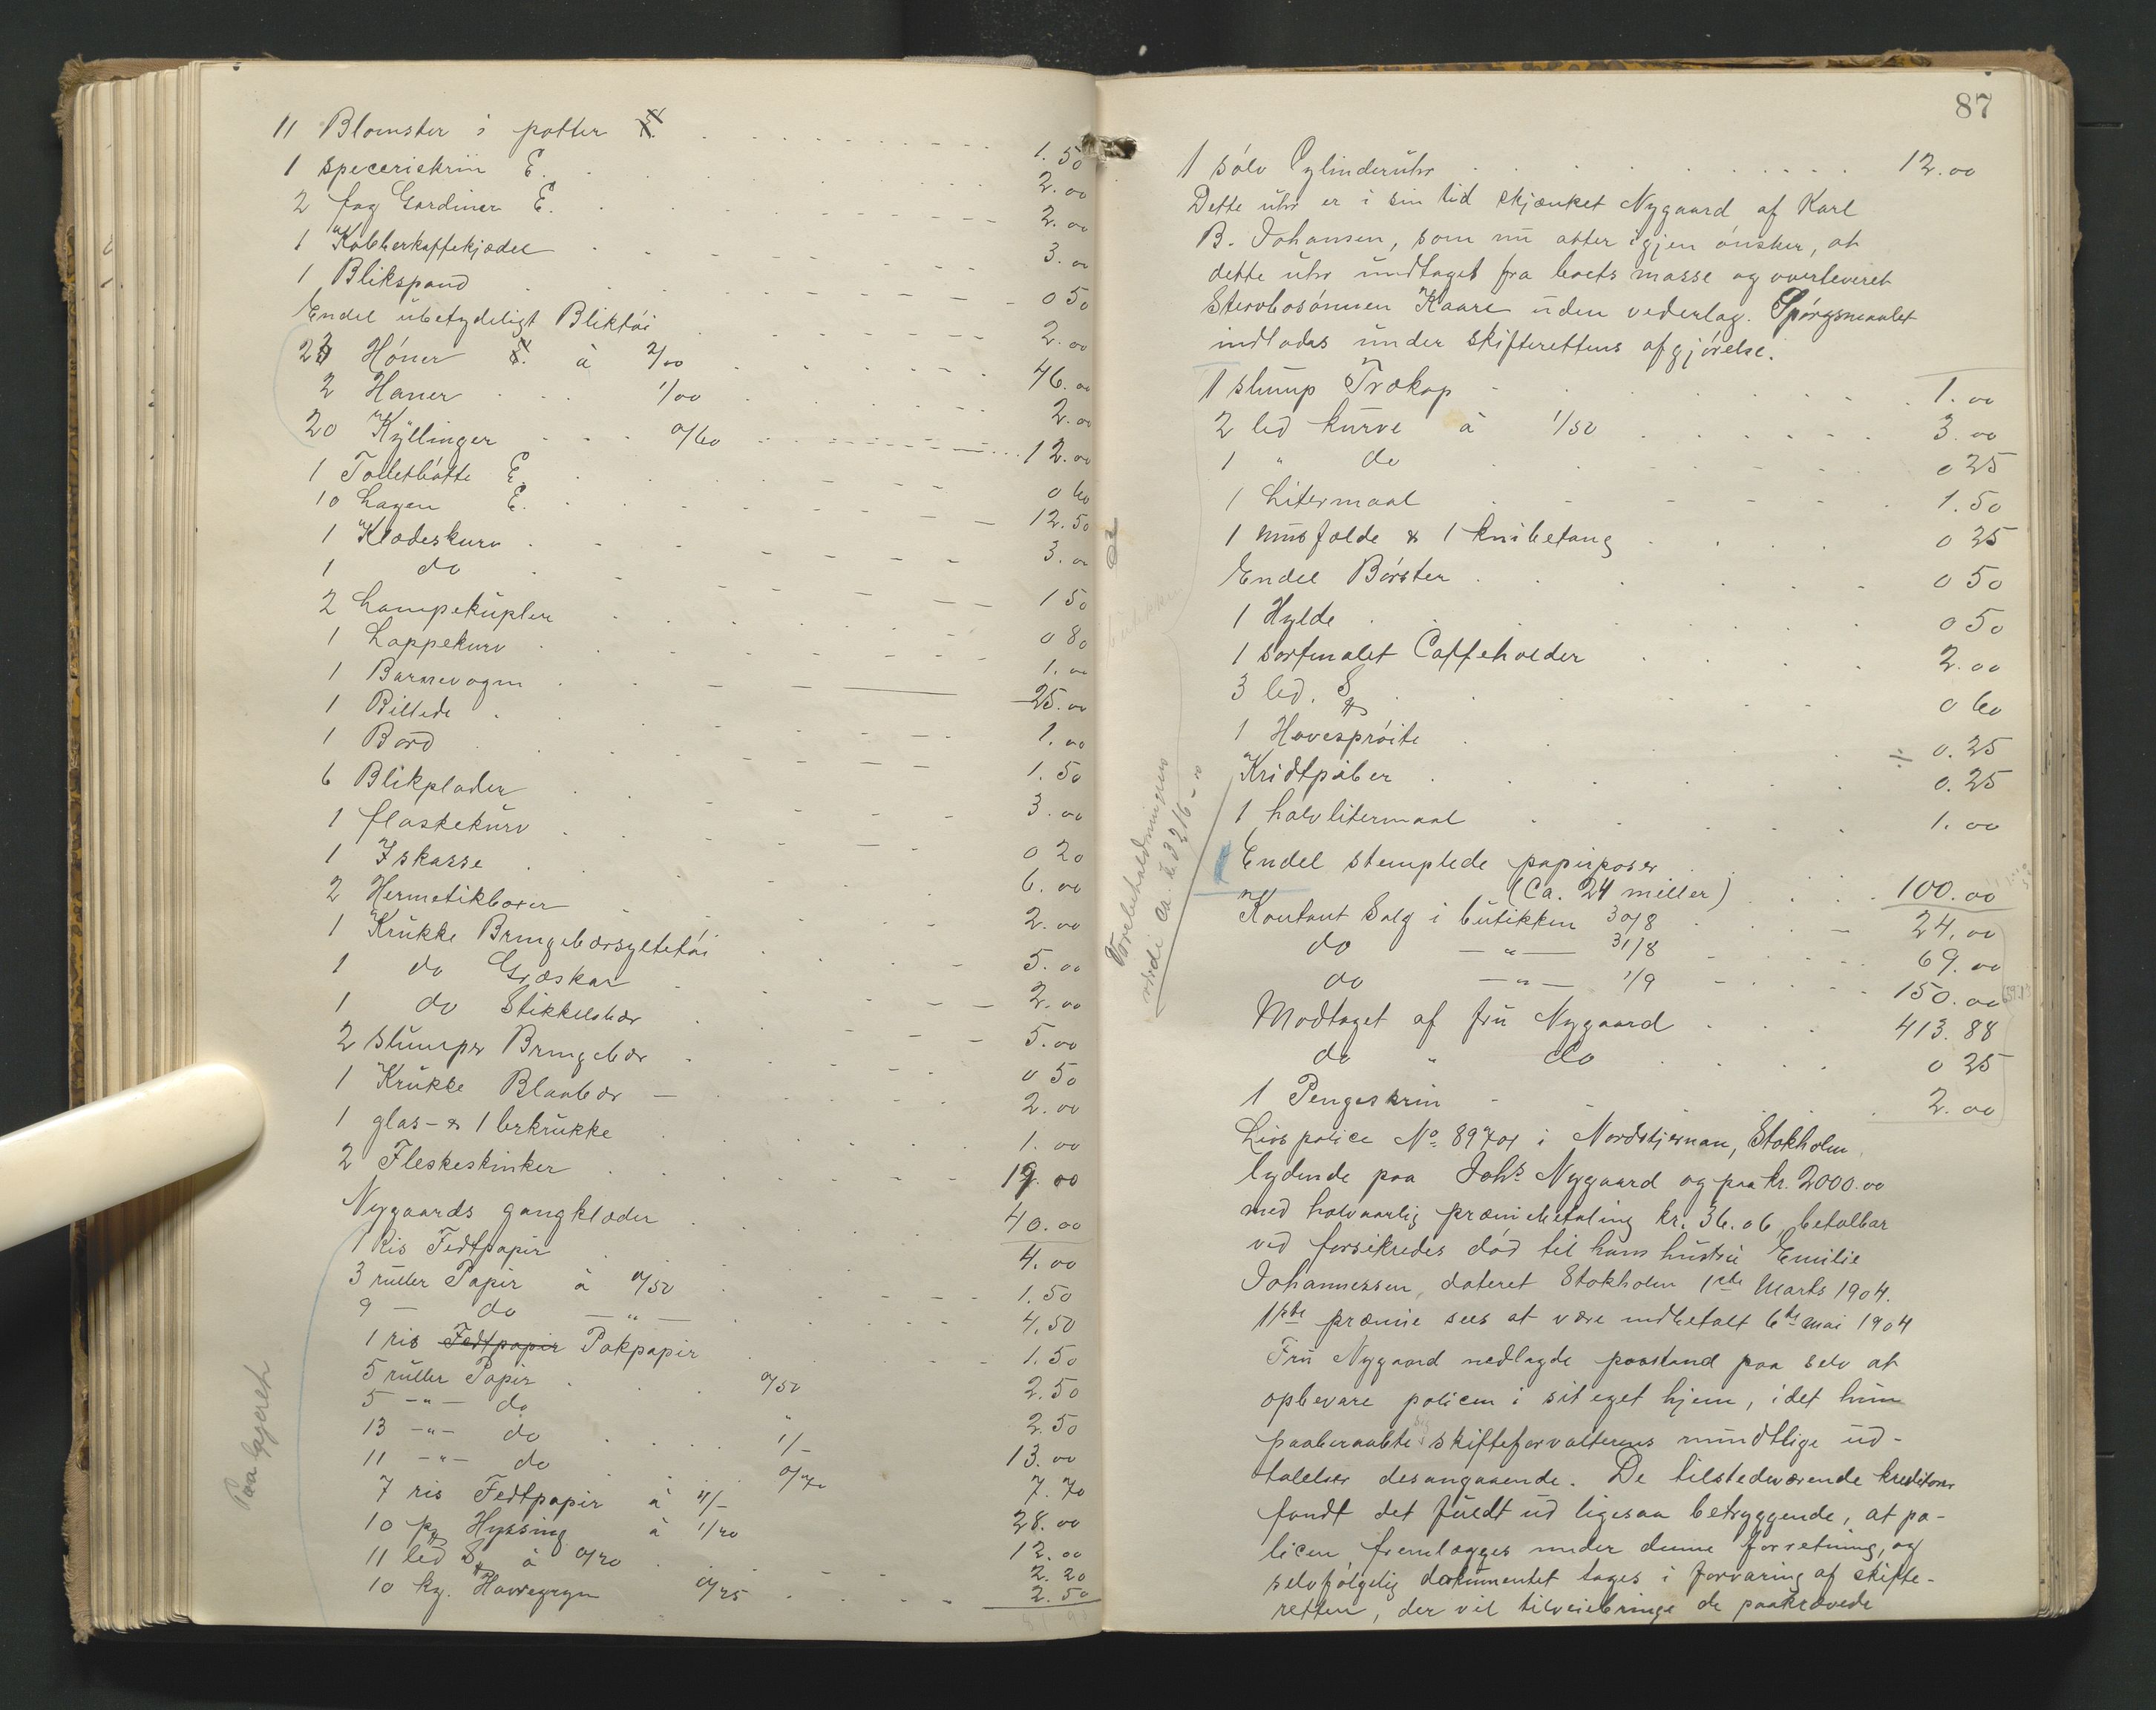 11 Blomster i potter . . . 1.50
1 speceriskrin E. . . . 2.00
2 fag Gardiner E. . . . 2.00
1 Kobberkaffekjedel . . . 3.00
1 Blikspand . . . 0 50
Endel übetydeligt Bliktöi . . . 2.00
23 Höner à 2/00 . . . 46.00
2 Haner . . . 1/00 . . . 2.00
20 Kyllinger . . . 0/60 . . . 12.00
1 Toiletbötte E. . . . 0 60
10 Lagen E. . . . 12.50
1 Klædeskurv . . . 3.00
1 do . . . 1 50
2 Lampekupler . . . 0 80
1 Lappekurv . . . 1.00
1 Barnevogn . . . 25.00
1 Billede . . . 1.00
1 Bord . . . 1.50
6 Blikplader . . . 3.00
1 flaskekurv . . . 0 20
1 Iskasse . . . 6.00
2 Hermetikboxer . . . 2.00
1 Krukke Bringebærsyltetöi . . . 5.00
1 do Græskar . . . 2.00
1 do Stikkelsbær . . . 5.00
2 slumper Bringebær . . . 0 50
1 Krukke Blaabær . . . 2.00
1 glas- & 1 lerkrukke . . . 1.00
2 Fleskeskinker . . . 19.00
Nygaards gangklæder . . . 40.00
1 Ris Fedtpapir . . . 4.00
3 ruller Papir à 0/50 . . . 1.50
9 — do — " — . . . 4.50
1 ris Fedtpapir Pakpapir . . . 1.50
5 ruller Papir . . . 0/50 2.50
5 -"- do " 2.50
13 -"- do . . . 1/- 13.00
11 -"- do 0/70 7.70
7 ris Fedtpapir à 4/- 28.00
10 pk Hyssing à 1/20 12.00
11 led. à 0/20 . . . 2.20
10 kg. Havregryn 0/25 . . . 2.50
Paa lageret
87
1 sölv Cylinderuhr . . . 12.00
Dette uhr er i sin tid skjænket Nygaard af Karl
B. Johansen, som nu atter igjen önsker, at
dette uhr undtaget fra boets masse og overleveret
Stervbosönnen Kaare uden vederlag. Spörgsmaalet
indlades under skifterettens afgjörelse.
1 slump Trækop . . . 1.00
2 led kurve à 1/50 . . . 3.00
1 " do . . . 0 25
1 Litermaal . . . 1.50
1 musfælde & 1 knibetang . . . 0 25
Endel Börster . . . 0 50
1 Hylde . . . 0 50
1 sortmalet Caffeholder . . . 2.00
3 led. . . . 0 60
1 Havespröite . . . ÷ 0.25
Kridtpiber . . . 0.25
1 halvlitermaal . . . 1.00
Endel stemplede papirposer
(Ca. 24 miller) . . . 100.00
Kontant Salg i butikken 30/8 . . . 24.00
do — " — 31/8 . . . 69.00
do — " — 1/9 . . . 150.00
Modtaget af fru Nygaard . . . 413.88
do " do . . . 0 25
1 Pengeskrin . . . 2.00
Livspolice No. i Nordstjernan, Stokholm,
lydende paa Johs. Nygaard og paa kr. 2000.00
med halvaarlig præmiebetaling kr. 36.06, betalbar
ved forsikredes död til hans hustru Emilie
Johannessen, dateret Stokholm 1ste Marts 1904.
1ste præmie sees at være indbetalt 6te mai 1904
Fru Nygaard nedlagde paastand paa selv at
opbevare policen i sit eget hjem, idet hun
paaberaabte skifteforvalterens mundtlige ud-
talelser desangaaende. De tilstedeværende kreditorer
fandt det fuldt ud ligesaa betryggende, at po-
licen fremlægges under denne forretning, og
selvfölgelig dokumentet tages i forvaring af skifte-
retten, der vil tilveiebringe de paakrævede
Varebeholdningens
værdi ca. k. 3216-00
butikken